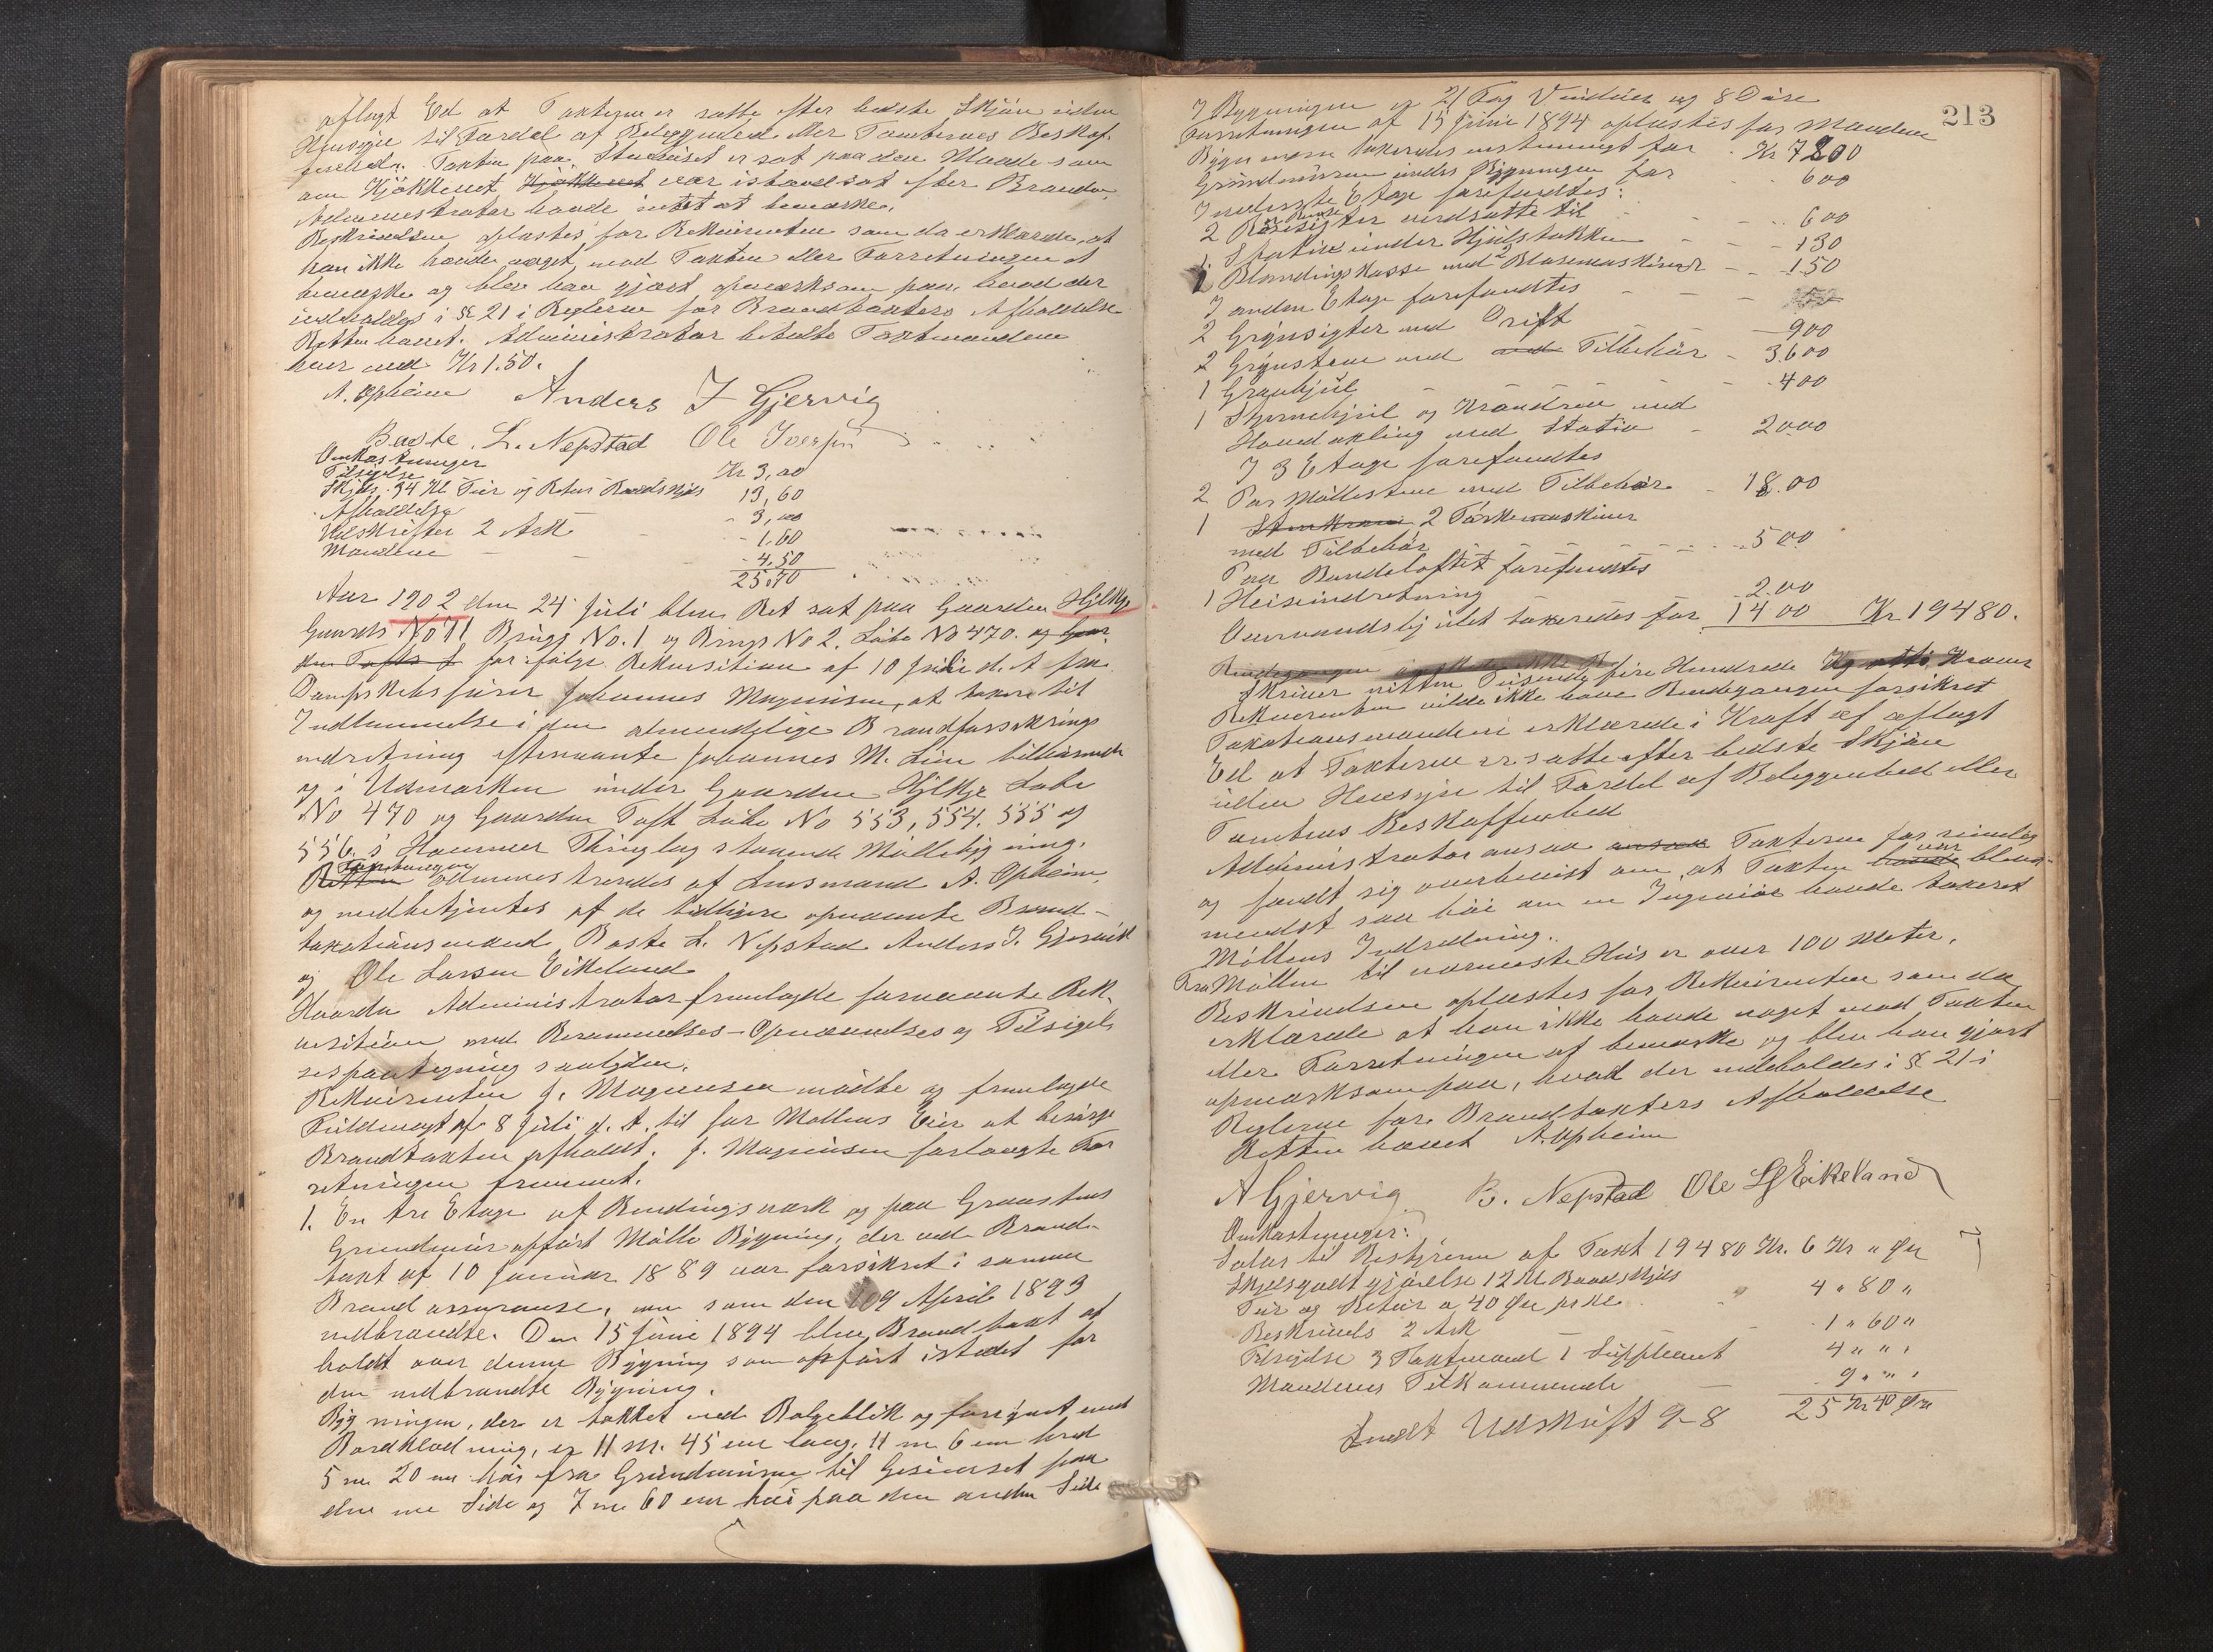 aflagt Ed at Taxterne er satte efter bedste Skjön uden
Hensyn til Fordel af Beliggenhed eller Tomternes Beskaf-
fenhed. Taxten paa Stuehuset er sat paa den Maade som
om Kjökkenet Kjökkenet var istandsat efter Branden.
Administrator havde intet at bemærke.
Beskrivelsen oplæstes for Rekvirenten som da erklærede, at
han ikke havde noget mod Taxten eller Forretningen at
bemærke og blev han gjort opmærksom paa, hvad der
indholdes i § 21 i Reglerne for Brandtaxters Afholdelse
Retten hævet. Administrator betalte Taxtmændene
hver med Kr 1.50.
A. Opheim Anders J Gjervig
Baste L. Nepstad Ole Iversen
Omkostninger
Tilsigelse Kr 3,00
Skyds 34 Kl. Tur og Retur Baadskyds 13,60
Afholdelse " 3,00
Udskrifter 2 Ark - 1,60
Mændene - - - 4,50
25,70
Aar 1902 den 24 Juli blev Ret sat paa Gaarden Hjelkje
Gaards No 11 Brugs No. 1 og Brugs No 2. Löbe No 470. og Gaar
den Tofts L for ifölge Rekvisition af 10 Juli d. A fra
Dampskibsförer Johannes Magnusen, at taxere til
Indlemmelse i den almindelige Brandforsikrings
indretning efternævnte Johannes M. Lien tilhörende
og i Udmarken under Gaarden Hjelkje Löbe
No 470 og Gaarden Toft Löbe No 553, 554. 555 og
556. i Hammer Thinglag staaende Möllebygning.
Retten Forretningen administreredes af Lensmand A. Opheim,
og medbetjentes af de tidligere opnævnte Brand-
taxationsmænd Baste L. Nepstad Anders J. Gjervik
og Ole Larsen Eikeland
Hvorda Administrator fremlagde fornævnte Rek-
visition med Berammelses- Opnævnelses og Tilsigel-
sespaategning saalyden.
Rekvirenten J. Magnusen mödte og fremlagde
Fuldmagt af 8 Juli d. A. til for Möllens Eier at besörge
Brandtaxten afholdt. J. Magnusen forlangte For
retningen fremmet.
1. En tre Etage af Bindingsværk og paa Graastens
Grundmur opfört Mölle Bygning, der ved Brand-
taxt af 10 Januar 1889 var forsikret i samme
Brandassurance, men som den 9 April 1893
nedbrændte. Den 15 Juni 1894 blev Brandtaxt af
holdt over denne Bygning som opfört istedet for
den nedbrændte Bygning.
Bygningen, der er tækket med Bölgeblik og forsynet med
Bordklædning, er 11 m. 45 cm lang. 11 m 6 cm bred
5 m 20 cm höi fra Grundmuren til Gesimset paa
den ene Side og 7 m 60 cm höi paa den anden Side
213
I Bygningen er 21 Fag Vinduer og 8 Döre
Forretningen af 15 Juni 1894 oplæstes for Mændene
Bygningen taxeredes enstemmigt for - Kr 7200
Grundmuren under Bygningen for - - 600
I nederste Etage forefandtes:
2 Rensesigter værdsatte til - - - 600
1 Stativ under Hjulstokken - - - 130
1 Blandingskasse med 2 Blæsemaskiner - - 150
I anden Etage forefandtes - - -
2 Grynsigter med Drift - - - 900
2 Grynstene med med Tilbehör - 3600
1 Gravhjul - - - 400
1 Stjernehjul og Krondrev med
Hovedaxling med Stativ - 2000
I 3 Etage forefandtes
2 Par Möllestene med Tilbehör - 18.00
1 2 Törkemaskiner
med Tilbehör - - - 500
Paa Bundeloftet forefandtes
1 Heiseindretning 2.00
Overvandshjulet taxeredes for 1400 Kr 19480.
Skriver nitten Tusende fire Hundrede Kroner
Rekvirenten vilde ikke have Rendegangen forsikret
Taxationsmændene erklærede i Kraft af aflagt
Ed at Taxterne er satte efter bedste Skjön
uden Hensyn til Fordel af Beliggenhed eller
Tomtens Beskaffenhed
Administrator ansaa ansaa Taxterne for rimelig
og fandt sig overbevist om, at Taxten havde var bleven
mindst saa höi om en Ingeniör havde taxeret
Möllens Indredning.
Fra Möllen til nærmeste Hus er over 100 Meter.
Beskrivelsen oplæstes for Rekvirenten som da
erklærede at han ikke havde noget mod Taxten
eller Forretningen at bemærke og blev han gjort
opmærksom paa, hvad der indeholdes i § 21 i
Reglerne for Brandtaxters Afholdelse
Retten hævet A. Opheim
A Gjervig B. Nepstad Ole L Eikeland
Omkostninger:
Salær til Bestyreren af Taxt 19480 Kr. 6 Kr " Öre
Skydsgodtgjörelse 12 Kl. Baadskyds
Tur og Retur a 40 Öre pr Kl. - 4 " 80 "
Beskrivels 2 Ark - 1 " 60 "
Tilsigelse 3 Taxtmænd 1 Suppleant 4 " " "
Mændenes Tilkommende - 9 " " "
25 Kr 40 Öre
Sendt Udskrift 9-8